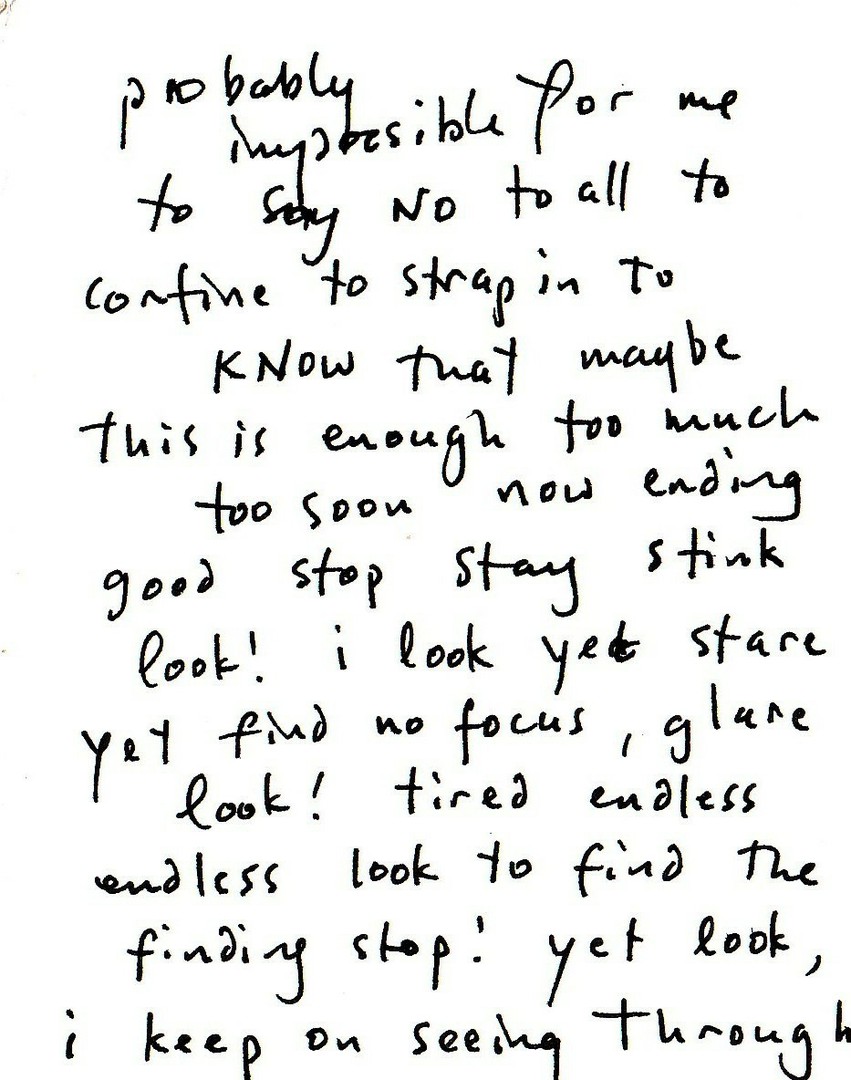 probably
impossible for me
to say NO to all to
confine to strap in to
KNOW that maybe
this is enough too much
too soon now ending
good stop stay stink
look! i look yet stare
yet find no focus, glare
look! tired endless
endless look to find the
finding stop! yet look,
i keep on seeing through